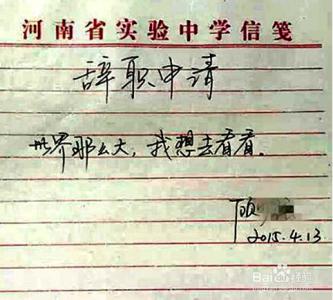 河南省实验中学信笺
辞职申请
世界那么大，我想去看看。
顾
2015.4.13
Baidu 经验